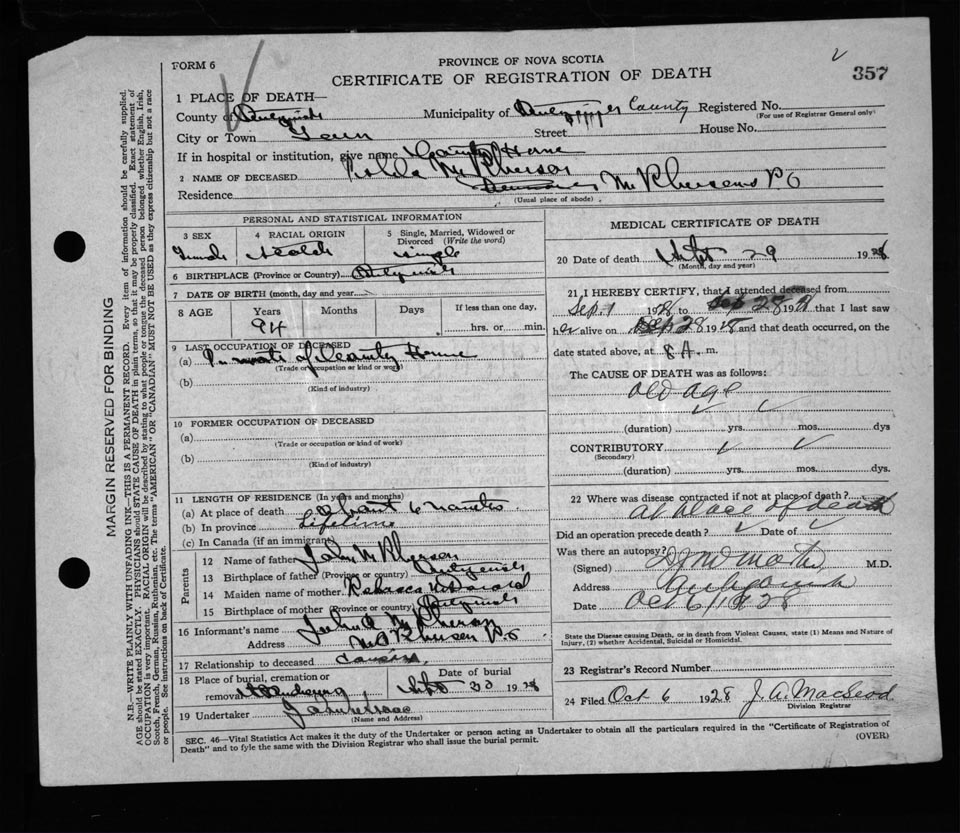 FORM 6
PROVINCE OF NOVA SCOTIA
CERTIFICATE OF REGISTRATION OF DEATH
357
1 PLACE OF DEATH—
County of
Municipality of County Registered No.
(For use of Registrar General only)
City or Town Street House No.
If in hospital or institution, give name County Home
2 NAME OF DECEASED McPherson
Residence McPhersons P O
(Usual place of abode)
PERSONAL AND STATISTICAL INFORMATION
3 SEX 4 RACIAL ORIGIN 5 Single, Married, Widowed or Divorced (Write the word)
single
6 BIRTHPLACE (Province or Country)
7 DATE OF BIRTH (month, day and year)
8 AGE Years Months Days If less than one day,
94 hrs. or min.
9 LAST OCCUPATION OF DECEASED
(a) Inmate of County Home
(Trade or occupation or kind or work)
(b)
(Kind of industry)
10 FORMER OCCUPATION OF DECEASED
(a)
(Trade or occupation or kind of work)
(b)
(Kind of industry)
11 LENGTH OF RESIDENCE (In years and months)
(a) At place of death about 6 months
(b) In province Lifetime
(c) In Canada (if an immigrant)
Parents
12 Name of father John McPherson
13 Birthplace of father (Province or country)
14 Maiden name of mother Rebecca McDonald
15 Birthplace of mother (Province or country)
16 Informant's name John McPherson
Address McPherson P.O
17 Relationship to deceased cousin
18 Place of burial, cremation or removal Date of burial
Sept 30 1928
19 Undertaker
(Name and Address)
MEDICAL CERTIFICATE OF DEATH
20 Date of death Sept 29 1928
(Month, day and year)
21 I HEREBY CERTIFY, that I attended deceased from
Sep. 1 1928 to Sep 28 1928 that I last saw
her alive on Sep 28 1928 and that death occurred, on the
date stated above, at 8 A. m.
The CAUSE OF DEATH was as follows:
old age
(duration) yrs. mos. dys
CONTRIBUTORY
(Secondary)
(duration) yrs. mos. dys.
22 Where was disease contracted if not at place of death?
at place of death
Did an operation precede death? Date of
Was there an autopsy?
(Signed) M.D.
Address
Date Oct 6/1928
State the Disease causing Death, or in death from Violent Causes, state (1) Means and Nature of
Injury, (2) whether Accidental, Suicidal or Homicidal.
23 Registrar's Record Number
24 Filed Oct 6 1928 J. A. MacLeod
Division Registrar
SEC. 46—Vital Statistics Act makes it the duty of the Undertaker or person acting as Undertaker to obtain all the particulars required in the "Certificate of Registration of
Death" and to fyle the same with the Division Registrar who shall issue the burial permit.
(OVER)
MARGIN RESERVED FOR BINDING
N.B.—WRITE PLAINLY WITH UNFADING INK—THIS IS A PERMANENT RECORD. Every item of information should be carefully supplied.
AGE should be stated EXACTLY. PHYSICIANS should STATE CAUSE OF DEATH in plain terms, so that it may be properly classified. Exact statement of
OCCUPATION is very important. RACIAL ORIGIN will be described by stating to what people or tongue the deceased person belonged whether English, Irish,
Scotch, French, German, Russian, Ruthenian, etc. The terms "AMERICAN" OR "CANADIAN" MUST NOT BE USED as they express citizenship but not a race
or people. See instructions on back of Certificate.